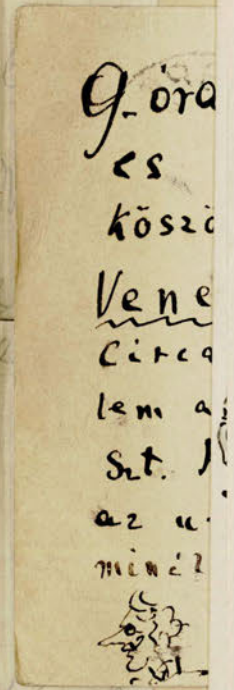 9. óra
és
köszö
Vene
Circa
lem a
Szt.
az u
minél